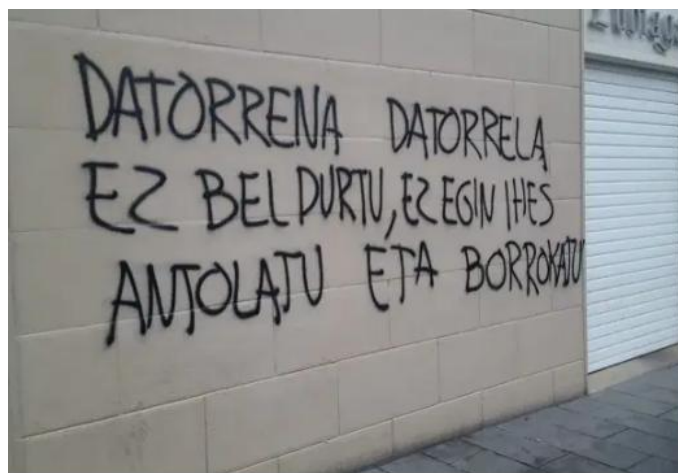 DATORRENA DATORRELA
EZ BELDURTU, EZ EGIN IHES
ANTOLATU ETA BORROKATU